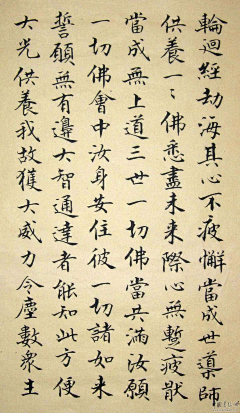 輪迴經劫海其心不疲懈當成世導師
供養一一佛悉盡未來際心無蹔疲猒
當成無上道三世一切佛當共滿汝願
一切佛會中汝身安住彼一切諸如來
誓願無有邊大智通達者能知此方便
大光供養我故獲大威力令塵數衆生